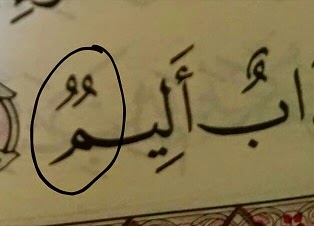 ابٌ أَلِيمٌ